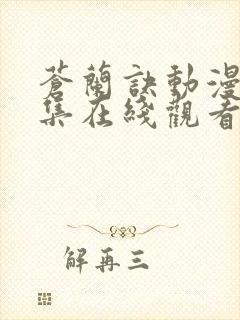 蒼蘭訣動漫
集在綫觀看
解再三